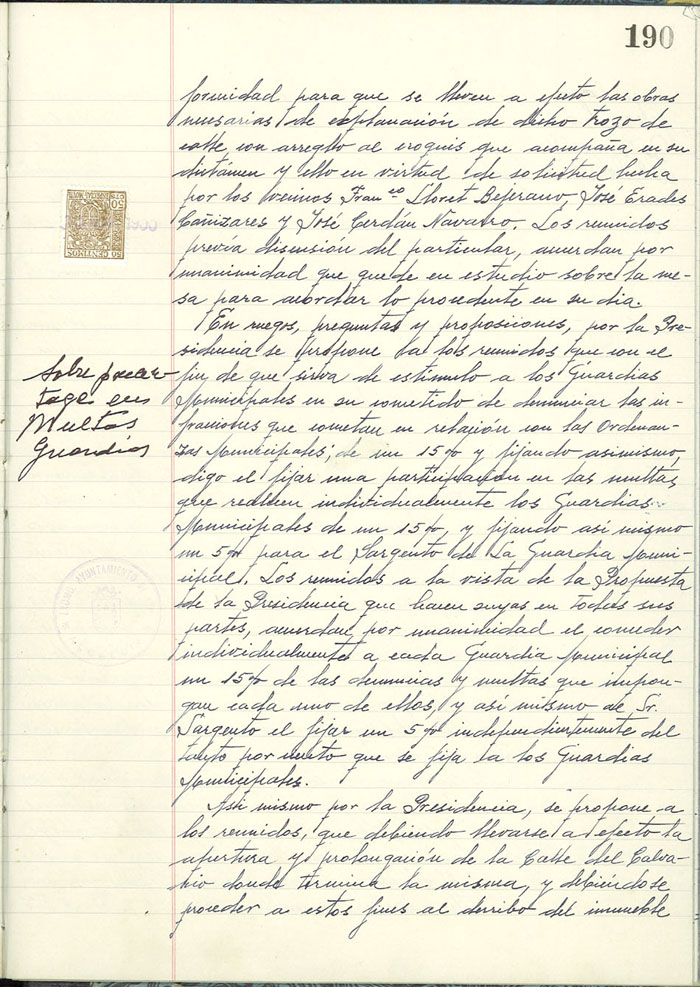 190
formidad para que se lleven a efecto las obras
necesarias de explanación de dicho trozo de
calle con arreglo al croquis que acompaña en su
dictámen y ello en virtud de solicitud hecha
por los vecinos Fran.co Lloret Bejerano, José Erades
Cañizares y José Cerdán Navarro. Los reunidos
previa discusión del particular, acuerdan por
unanimidad que quede en estudio sobre la me-
sa para acordar lo procedente en su dia.
En ruegos, preguntas y proposiciones, por la Pre-
sidencia se propone a los reunidos que con el
fin de que sirva de estimulo a los Guardias
Municipales en su cometido de denunciar las in-
fracciones que cometan en relación con las Ordenan-
zas Municipales; de un 15% y fijando asimismo,
digo el fijar una participación en las multas
que realicen individualmente los Guardias
Municipales de un 15%, y fijando asi mismo
un 5% para el Sargento de La Guardia Muni-
cipal. Los reunidos a la vista de la Propuesta
de la Presidencia que hacen suya en todas sus
partes, acuerdan por unanimidad el conceder
individualmente a cada Guardia Municipal
un 15% de las denuncias y multas que impon-
gan cada uno de ellos, y así mismo de Sr.
Sargento el fijar un 5% independientemente del
tanto por ciento que se fija a los Guardias
Municipales.
Asi mismo por la Presidencia, se propone a
los reunidos, que debiendo llevarse a efecto la
apertura y prolongación de la Calle del Calva-
rio donde termina la misma, y debiéndose
proceder a estos fines al derribo del inmueble
Sobre porcen-
tage en
Multas
Guardias
50 CENTIMOS
AYUNTAMIENTO